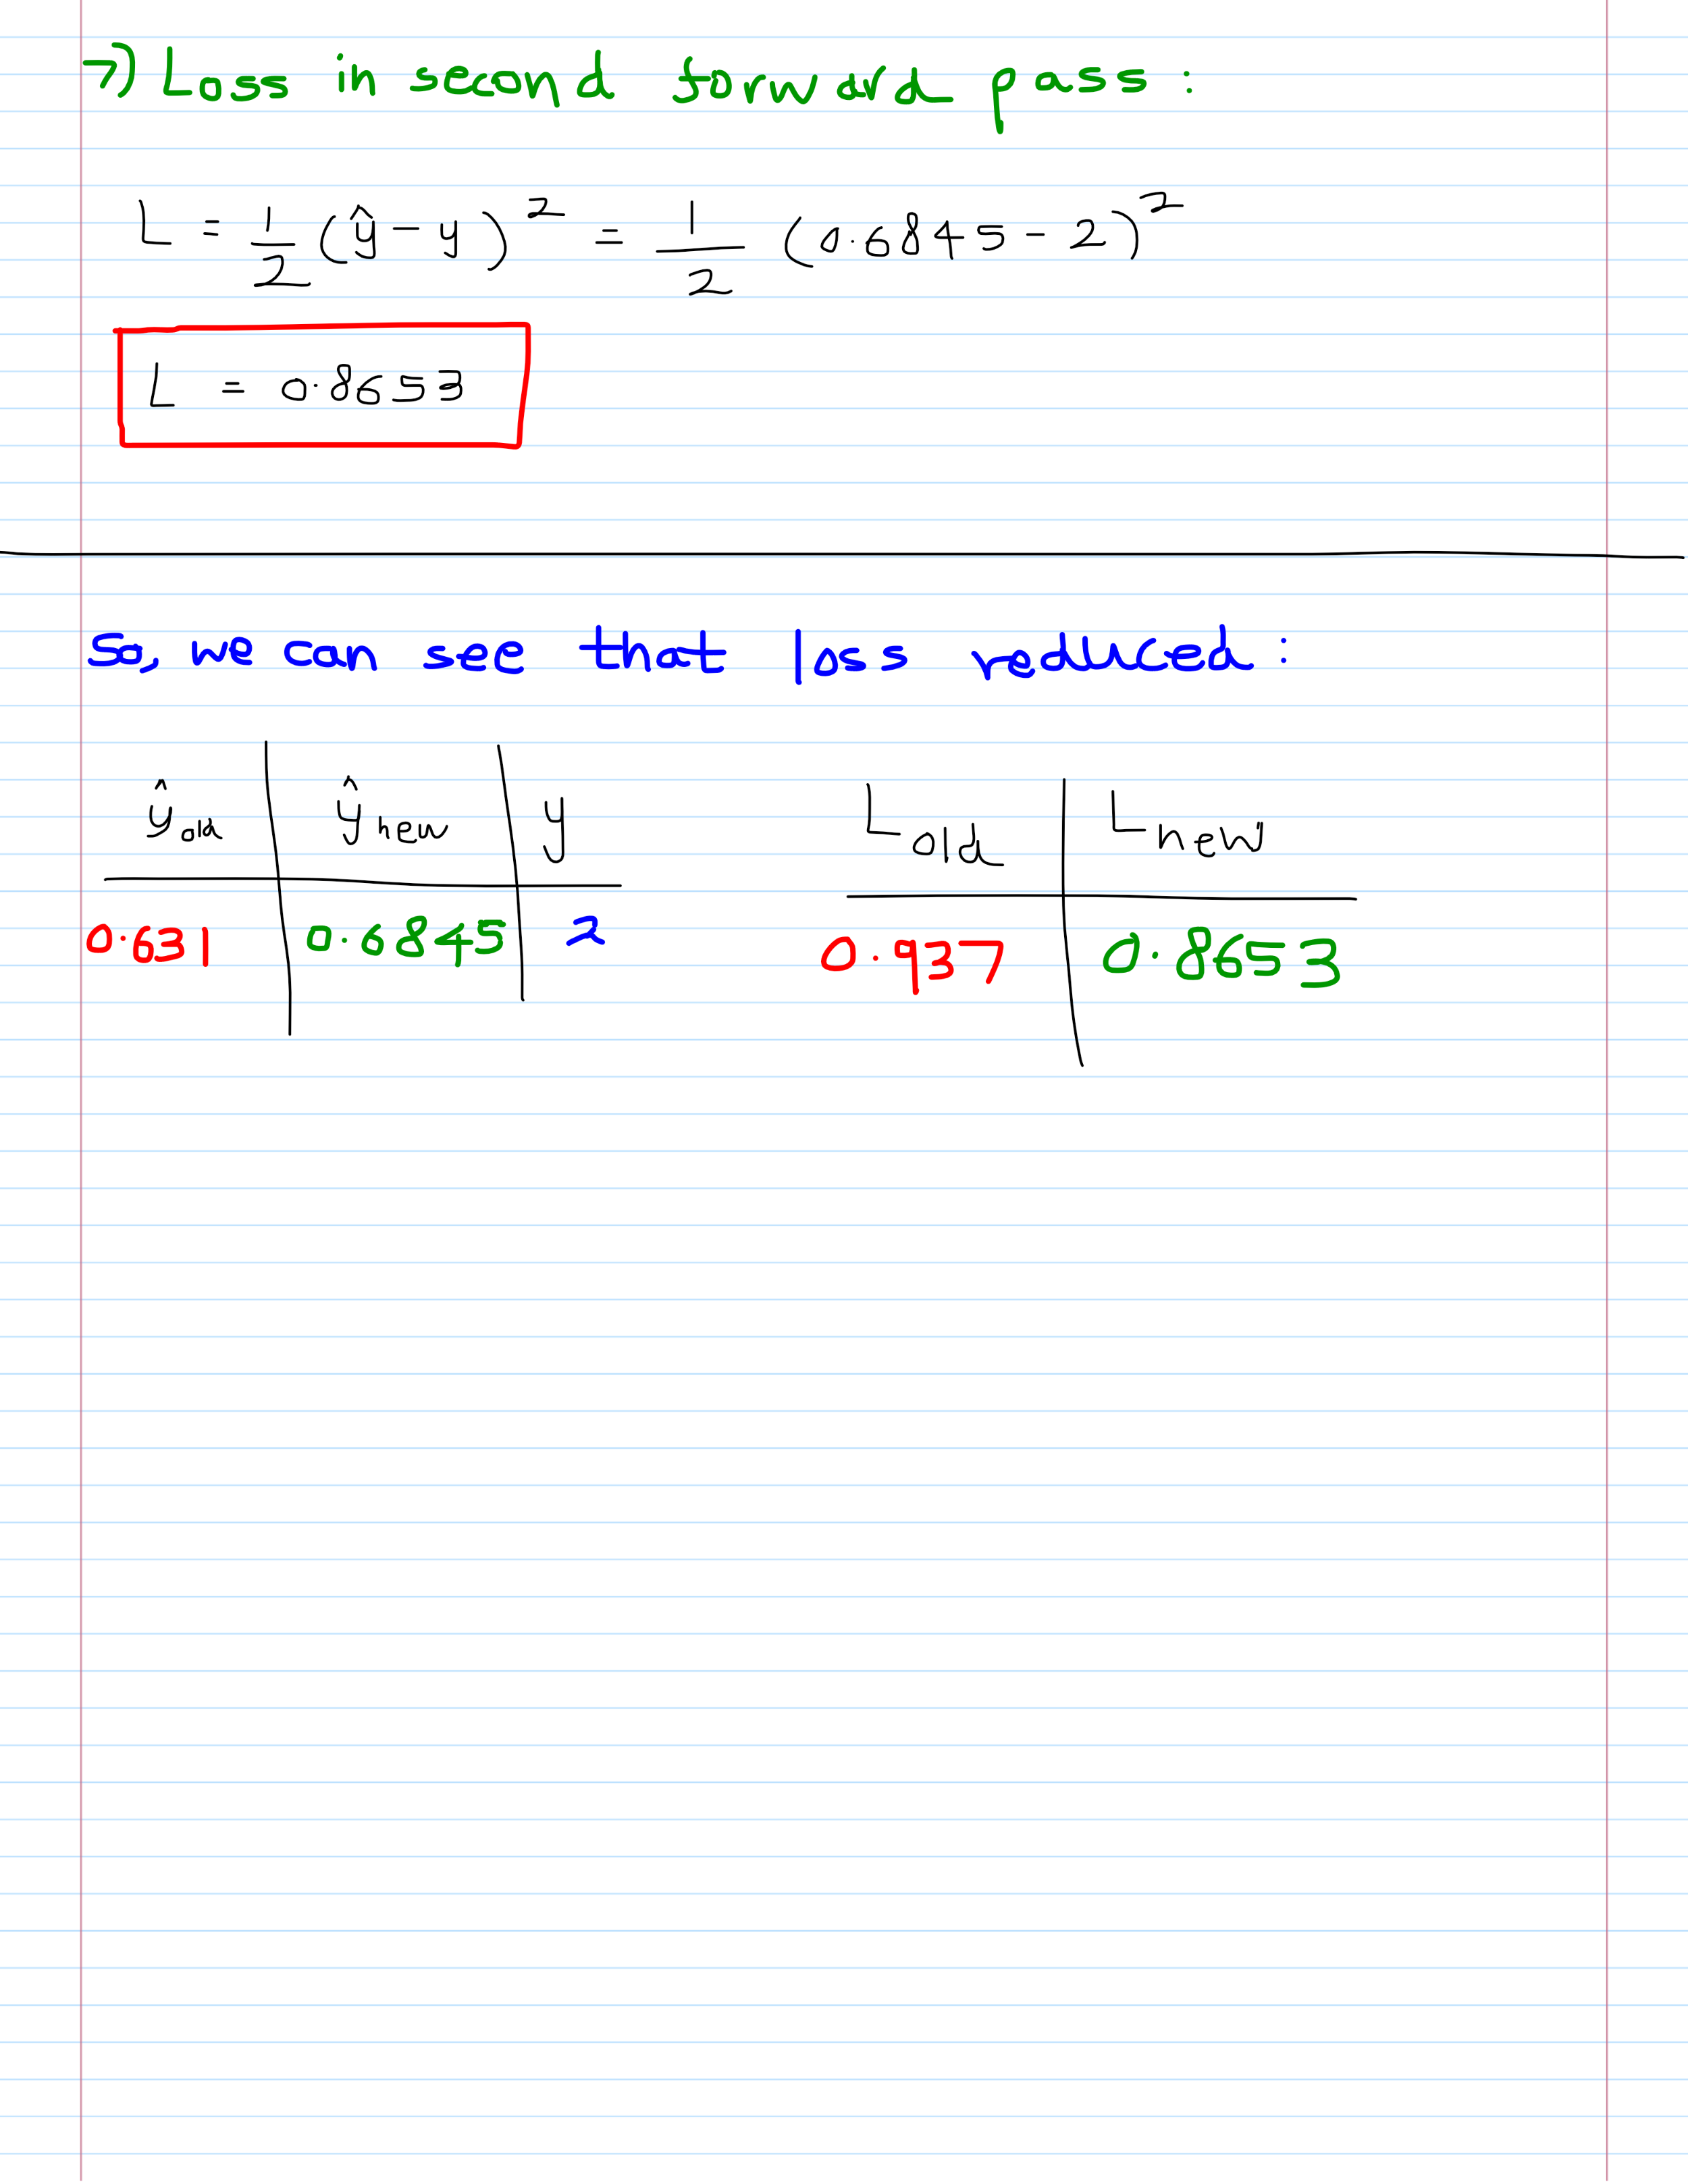 7) Loss in second forward pass :
L = 1/2 (ŷ - y)² = 1/2 (0.6845 - 2)²
L = 0.8653
So, we can see that loss reduced :
ŷ_old | ŷ_new | y
0.631 | 0.6845 | 2
L_old | L_new
0.937 | 0.8653